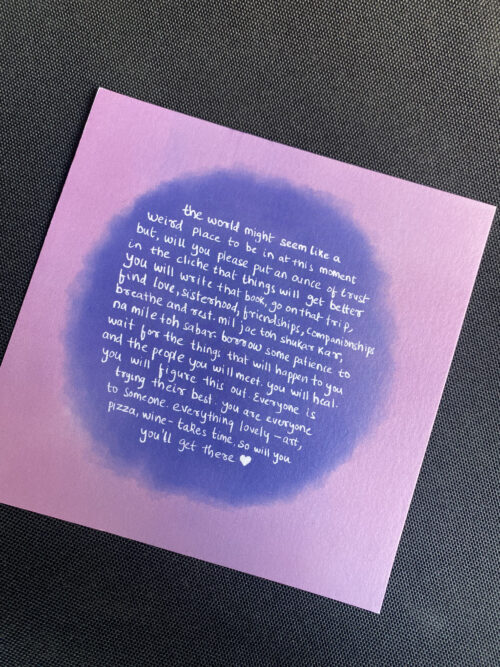 the world might seem like a
weird place to be in at this moment
but, will you please put an ounce of trust
in the cliche that things will get better
you will write that book, go on that trip,
find love, sisterhood, friendships, companionships
breathe and rest. mil jae toh shukar kar,
na mile toh sabar. borrow some patience to
wait for the things that will happen to you
and the people you will meet. you will heal.
you will figure this out. Everyone is
trying their best. you are everyone
to someone. everything lovely - art,
pizza, wine - takes time. so will you
you'll get there